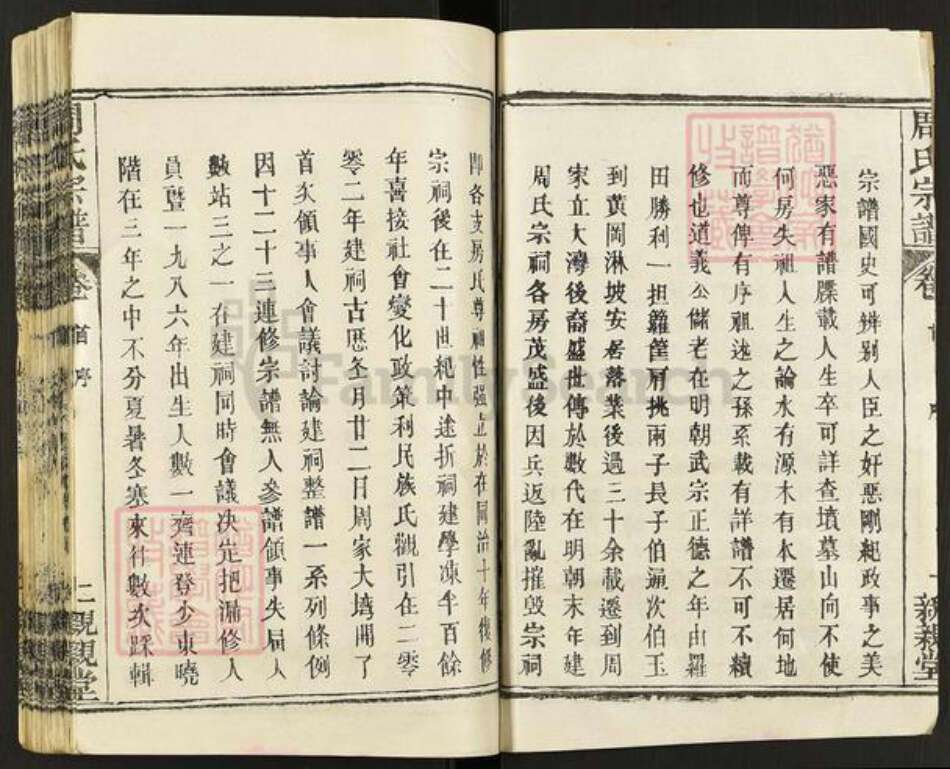 周氏宗譜
卷首
序
一
親親堂
宗譜國史可辨别人臣之奸惡剛紀政事之美
惡家有譜牒載人生卒可詳查墳墓山向不使
何房失祖人生之論水有源木有本遷居何地
而尊俾有序祖述之孫系載有詳譜不可不續
修也道義公儲老在明朝武宗正德之年由羅
田勝利一担籮筐肩挑兩子長子伯通次伯玉
到黄岡淋坡安居落業後過三十余載遷到周
家立大灣後裔盛世傳於數代在明朝末年建
周氏宗祠各房茂盛後因兵返陸亂摧毁宗祠
即各支房氏尊祖性强立於在同治十年復修
宗祠後在二十世紀中途折祠建學凍半百餘
年喜接社會變化政策利民族氏觀引在二零
零二年建祠古歴冬月廿二日周家大塆開了
首次領事人會議討論建祠整譜一系列條例
因十二二十三連修宗譜無人參譜領事失屆人
數站三之一在建祠同時會議决定把漏修人
員暨一九八六年出生人數一齊連登少東曉
階在三年之中不分夏暑冬寒來往數次踩輯
周氏宗譜
卷首
序
二
親親堂
FamilySearch